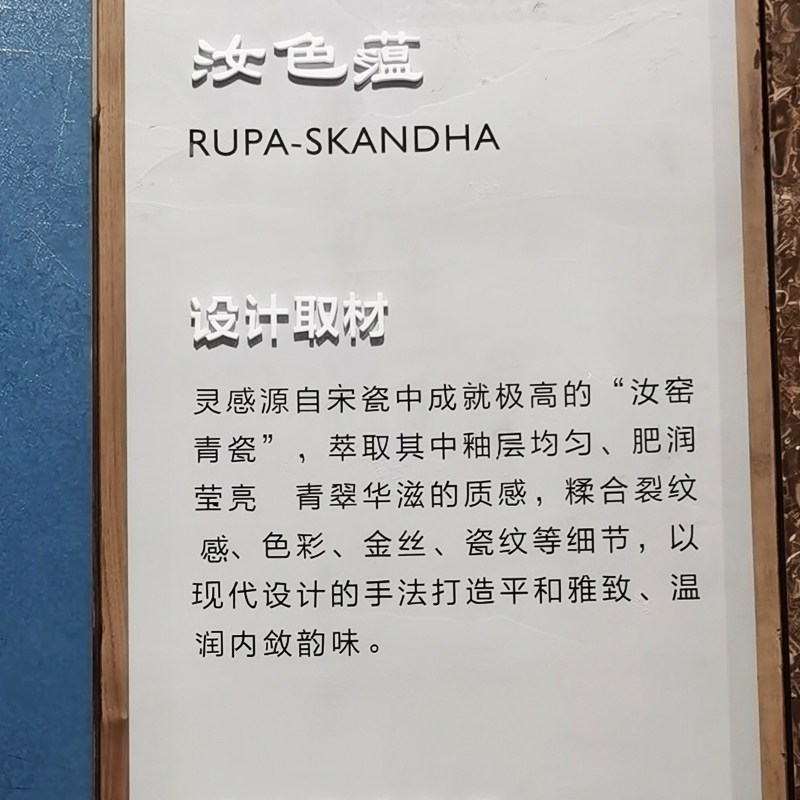 汝色蕴
RUPA-SKANDHA
设计取材
灵感源自宋瓷中成就极高的“汝窑
青瓷”，萃取其中釉层均匀、肥润
莹亮 青翠华滋的质感，糅合裂纹
感、色彩、金丝、瓷纹等细节，以
现代设计的手法打造平和雅致、温
润内敛韵味。